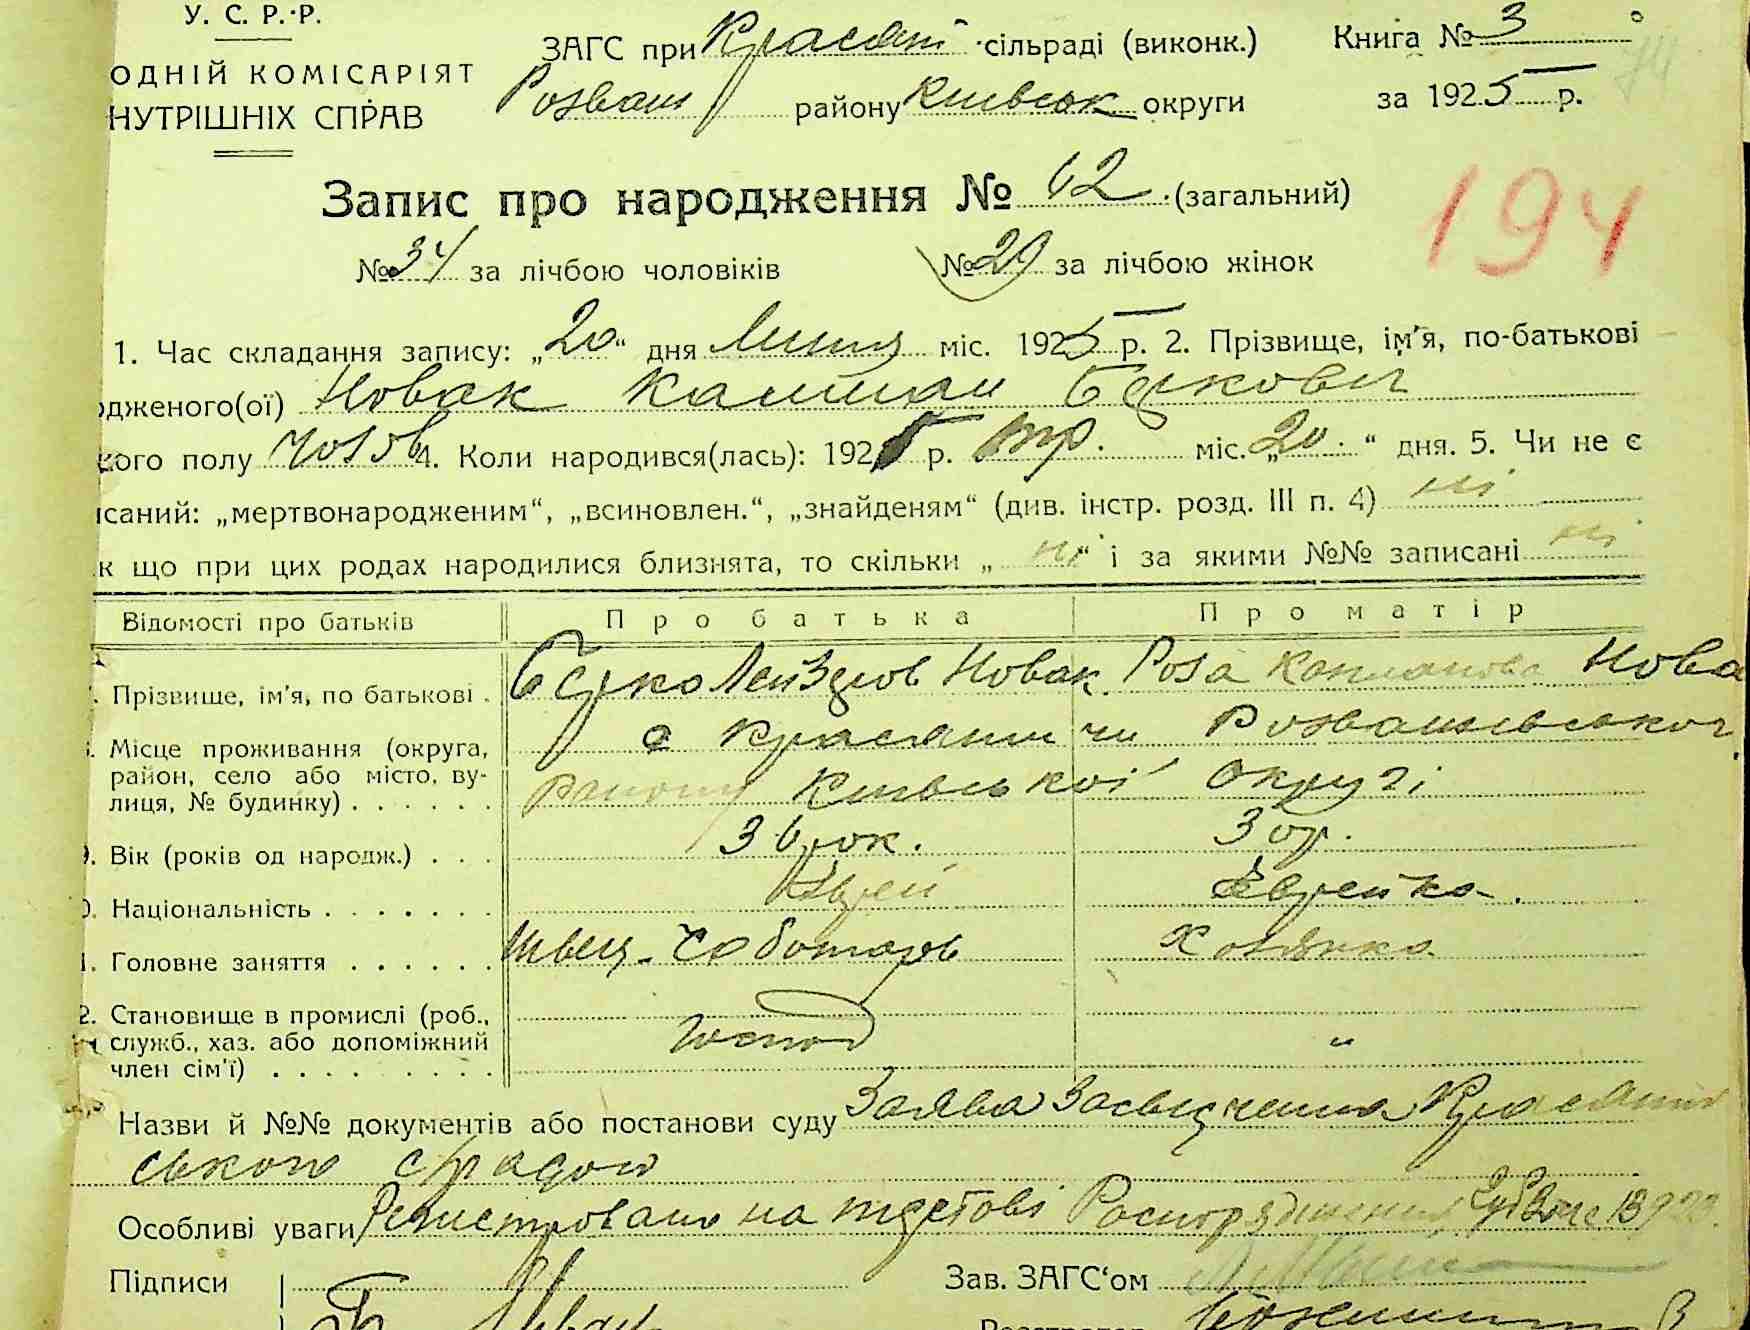 У. С. Р. Р.
ОДНІЙ КОМІСАРІЯТ
НУТРІШНІХ СПРАВ
ЗАГС при Красят сільраді (виконк.)
Розваж району Київськ округи
Книга № 3
за 1925 р.
Запис про народження № 62 (загальний)
194
№ 34 за лічбою чоловіків № 29 за лічбою жінок
1. Час складання запису: „20“ дня Липня міс. 1925 р. 2. Прізвище, ім'я, по-батькові
дженого(ої) Новак Каплан Беркович
кого полу чолов 4. Коли народився(лась): 1925 р. міс. „20“ дня. 5. Чи не є
исаний: „мертвонародженим“, „всиновлен.“, „знайденям“ (див. інстр. розд. III п. 4) ні
к що при цих родах народилися близнята, то скільки „ні“ і за якими №№ записані ні
Відомості про батьків Про батька Про матір
Прізвище, ім'я, по батькові . Берко Лейзеров Новак. Роза Каплановa Нова
Місце проживання (округа, с Красятичи Розважевської
район, село або місто, ву- району Київської округи
лиця, № будинку) . . . . . .
9. Вік (років од народж.) . . . 36 рок. 30 р.
0. Національність . . . . . . . Єврей Єврейка.
1. Головне заняття . . . . . . Швец-Чоботарь Хозяйка
2. Становище в промислі (роб.,
служб., хаз. або допоміжний Господ „
член сім'ї) . . . . . . . . .
Назви й №№ документів або постанови суду Заява Засвідчення Красят
ського с/радою
Особливі уваги Регистровано на підставі Распорядження
Підписи Зав. ЗАГС'ом
Новак